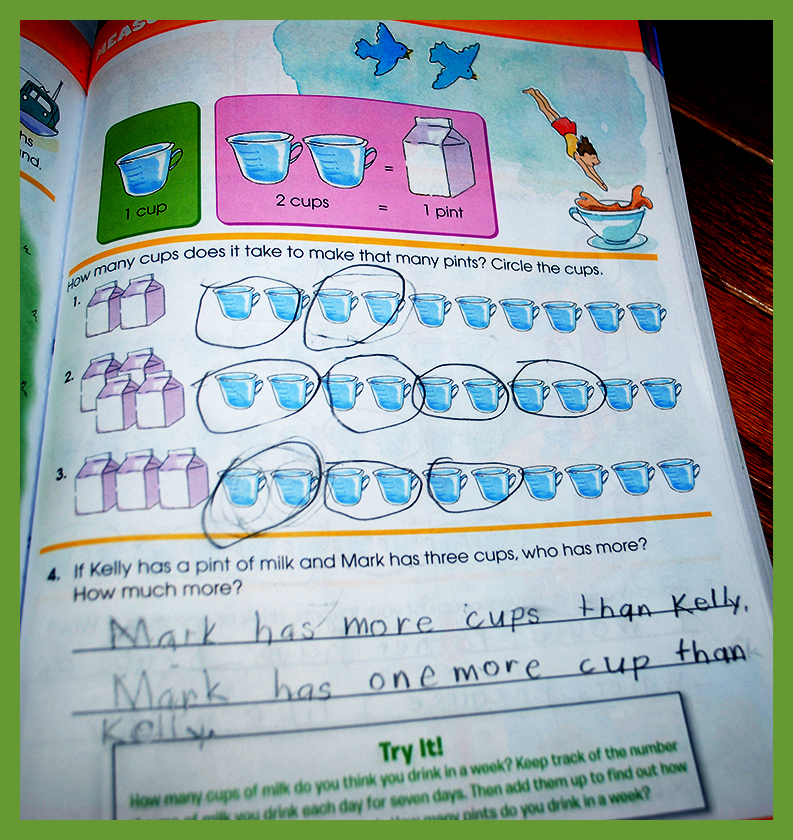 MEASU
hs
and.
1 cup
2 cups = 1 pint
=
How many cups does it take to make that many pints? Circle the cups.
1.
2.
3.
4. If Kelly has a pint of milk and Mark has three cups, who has more?
How much more?
Mark has more cups than Kelly.
Mark has one more cup than
Kelly.
Try It!
How many cups of milk do you think you drink in a week? Keep track of the number
of milk you drink each day for seven days. Then add them up to find out how
many pints do you drink in a week?